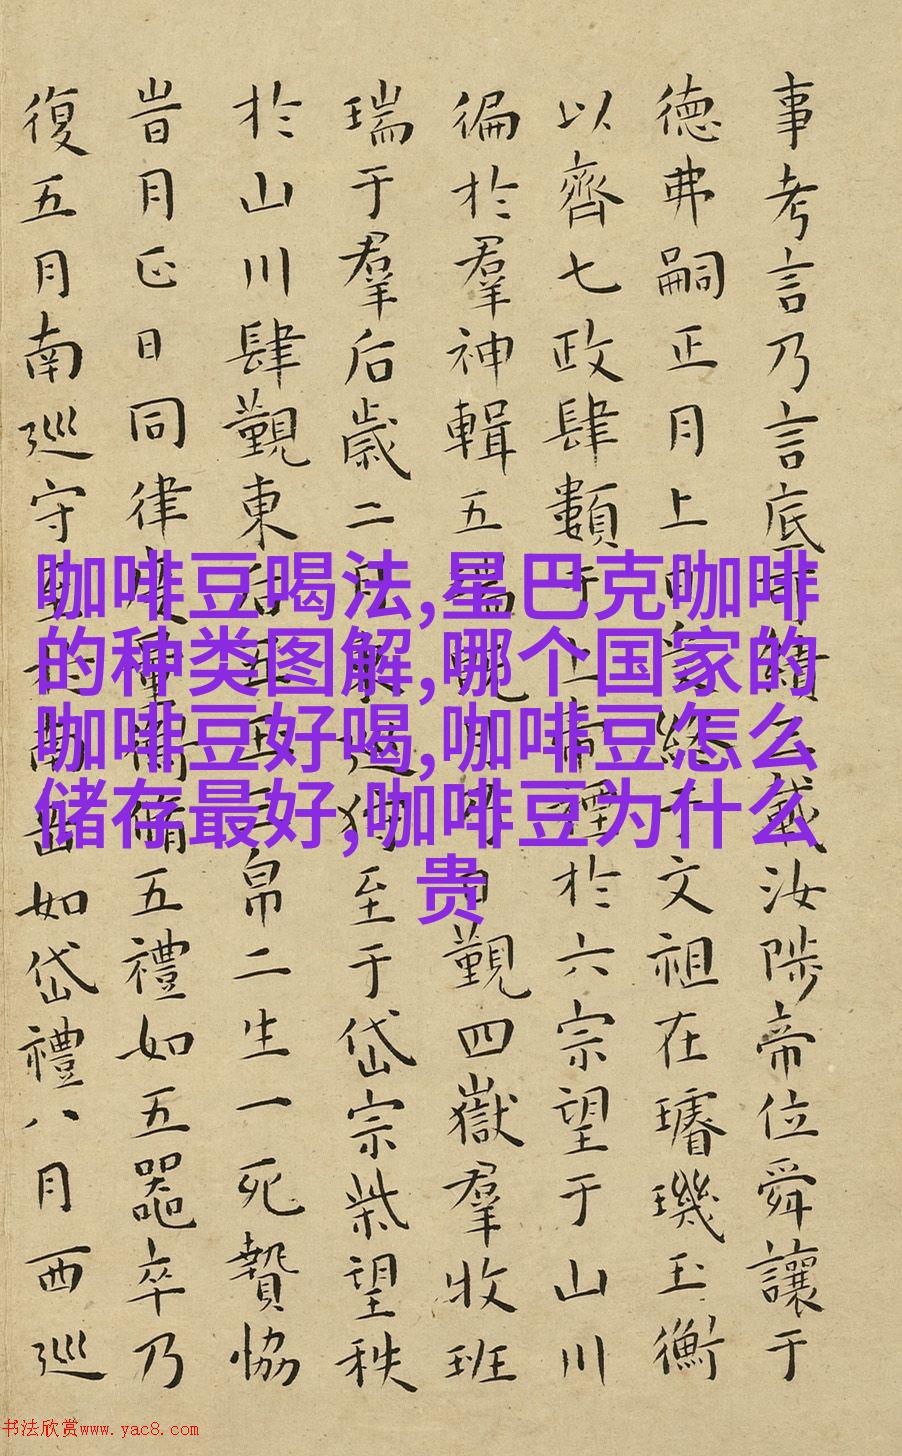 事考言乃言底可績載汝陟帝位舜讓于
德弗嗣正月上日受終于文祖在璿璣玉衡
以齊七政肆類于上帝禋於六宗望于山川
徧於羣神輯五瑞既月日覲四嶽羣牧班
瑞于羣后歲二月東巡狩至于岱宗柴望秩
於山川肆覲東后五玉三帛二生一死贄協
旹月正日同律度量衡脩五禮如五器卒乃
復五月南巡守至于南岳如岱禮八月西巡
咖啡豆喝法,星巴克咖啡
的种类图解,哪个国家的
咖啡豆好喝,咖啡豆怎么
储存最好,咖啡豆为什么
贵
书法欣赏www.yac8.com